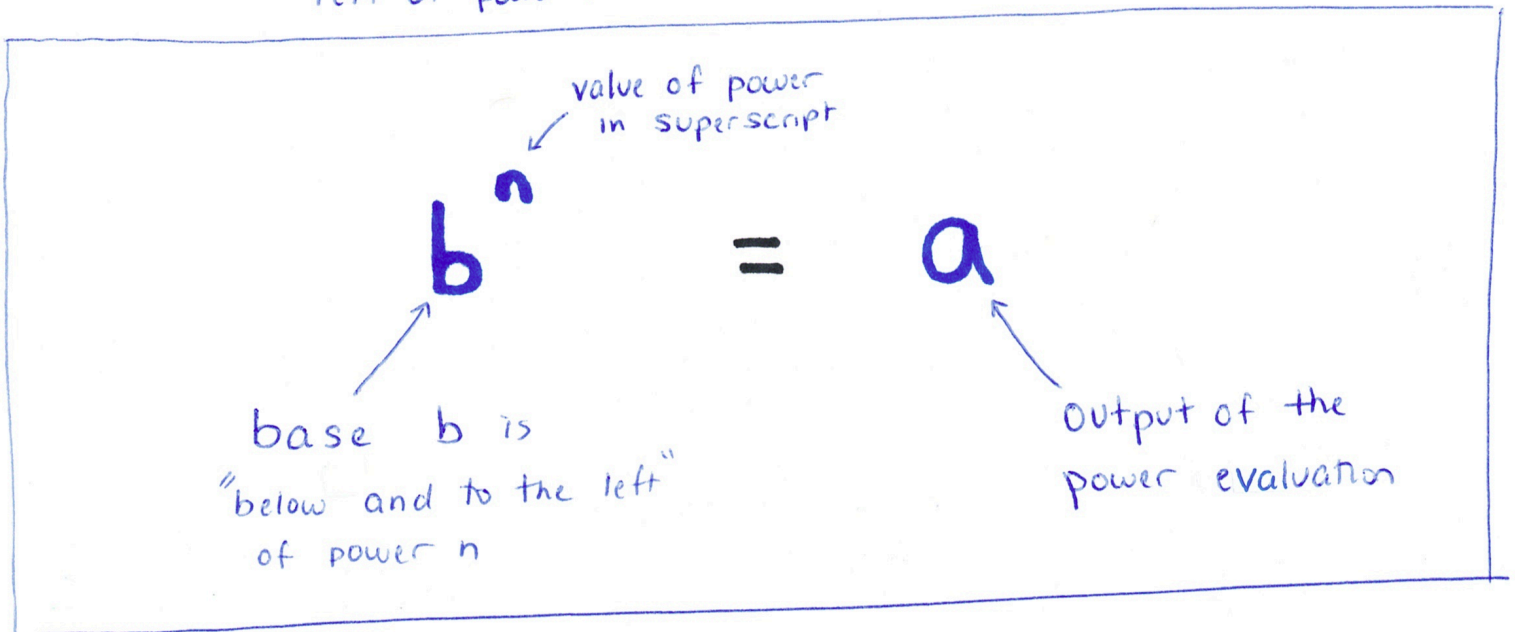 value of power
in superscript
bⁿ = a
base b is
"below and to the left"
of power n
output of the
power evaluation